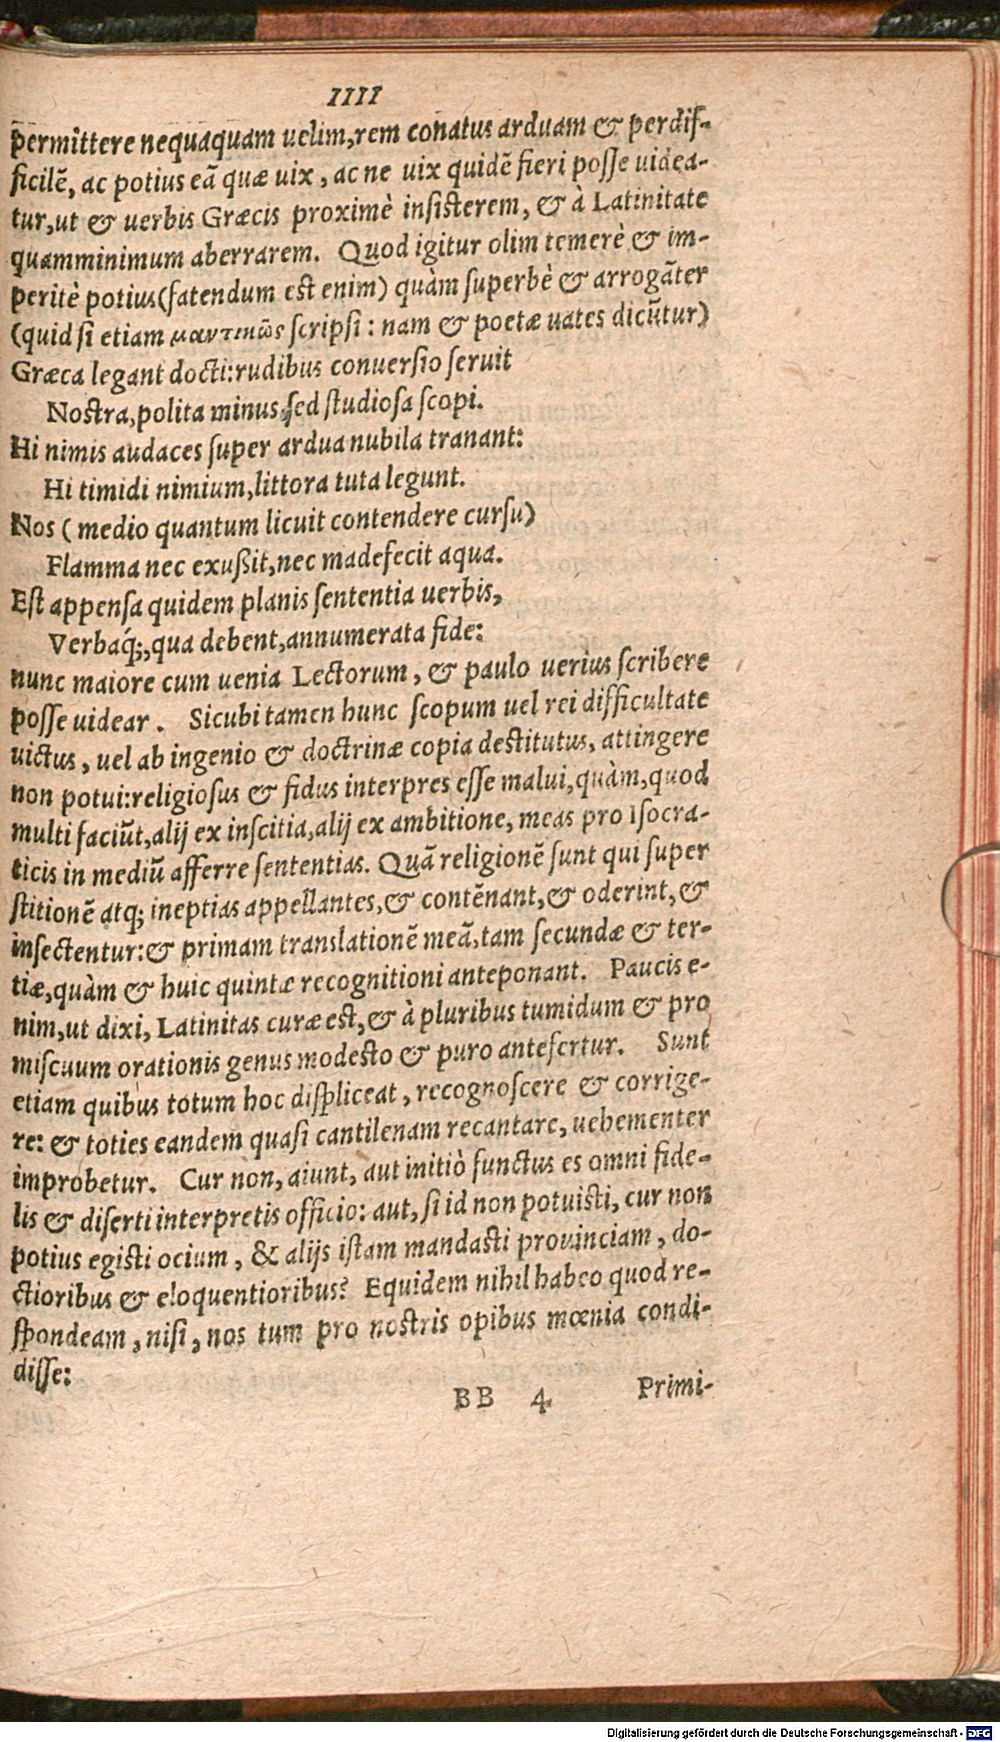 IIII
permittere nequaquam uelim, rem conatus arduam & perdif-
ficilẽ, ac potius eã quæ uix, ac ne uix quidẽ fieri posse uidea-
tur, ut & uerbis Græcis proximè insisterem, & à Latinitate
quamminimum aberrarem. Quod igitur olim temerè & im-
peritè potius (fatendum est enim) quàm superbè & arrogãter
(quid si etiam μαντικῶς scripsi: nam & poetæ uates dicũtur)
Græca legant docti: rudibus conuersio seruit
Nostra, polita minus, sed studiosa scopi.
Hi nimis audaces super ardua nubila tranant:
Hi timidi nimium, littora tuta legunt.
Nos (medio quantum licuit contendere cursu)
Flamma nec exußit, nec madefecit aqua.
Est appensa quidem planis sententia uerbis,
Verbaq́;, qua debent, annumerata fide:
nunc maiore cum uenia Lectorum, & paulo uerius scribere
posse uidear. Sicubi tamen hunc scopum uel rei difficultate
uictus, uel ab ingenio & doctrinæ copia destitutus, attingere
non potui: religiosus & fidus interpres esse malui, quàm, quod
multi faciũt, alij ex inscitia, alij ex ambitione, meas pro Isocra-
ticis in mediũ afferre sententias. Quã religionẽ sunt qui super
stitionẽ atq; ineptias appellantes, & contẽnant, & oderint, &
insectentur: & primam translationẽ meã, tam secundæ & ter-
tiæ, quàm & huic quintæ recognitioni anteponant. Paucis e-
nim, ut dixi, Latinitas curæ est, & à pluribus tumidum & pro
miscuum orationis genus modesto & puro antefertur. Sunt
etiam quibus totum hoc displiceat, recognoscere & corrige-
re: & toties eandem quasi cantilenam recantare, uehementer
improbetur. Cur non, aiunt, aut initiò functus es omni fide-
lis & diserti interpretis officio: aut, si id non potuisti, cur non
potius egisti ocium, & alijs istam mandasti prouinciam, do-
ctioribus & eloquentioribus? Equidem nihil habeo quod re-
spondeam, nisi, nos tum pro nostris opibus mœnia condi-
disse:
BB 4 Primi-
Digitalisierung gefördert durch die Deutsche Forschungsgemeinschaft - DFG